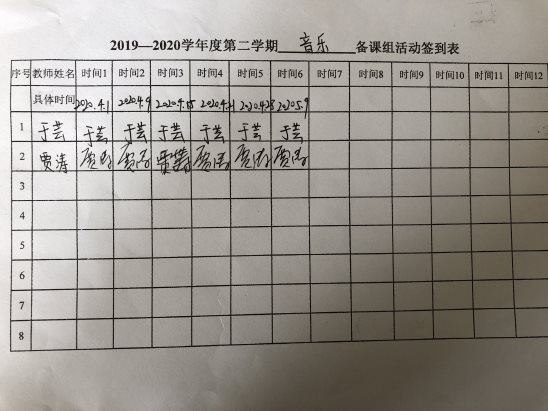 2019—2020学年度第二学期 音乐 备课组活动签到表
序号 教师姓名 时间1 时间2 时间3 时间4 时间5 时间6 时间7 时间8 时间9 时间10 时间11 时间12
具体时间 2020.4.1 2020.4.9 2020.4.15 2020.4.21 2020.4.28 2020.5.9
1 于芸 于芸 于芸 于芸 于芸 于芸 于芸
2 贾涛 贾涛 贾涛 贾涛 贾涛 贾涛 贾涛
3
4
5
6
7
8